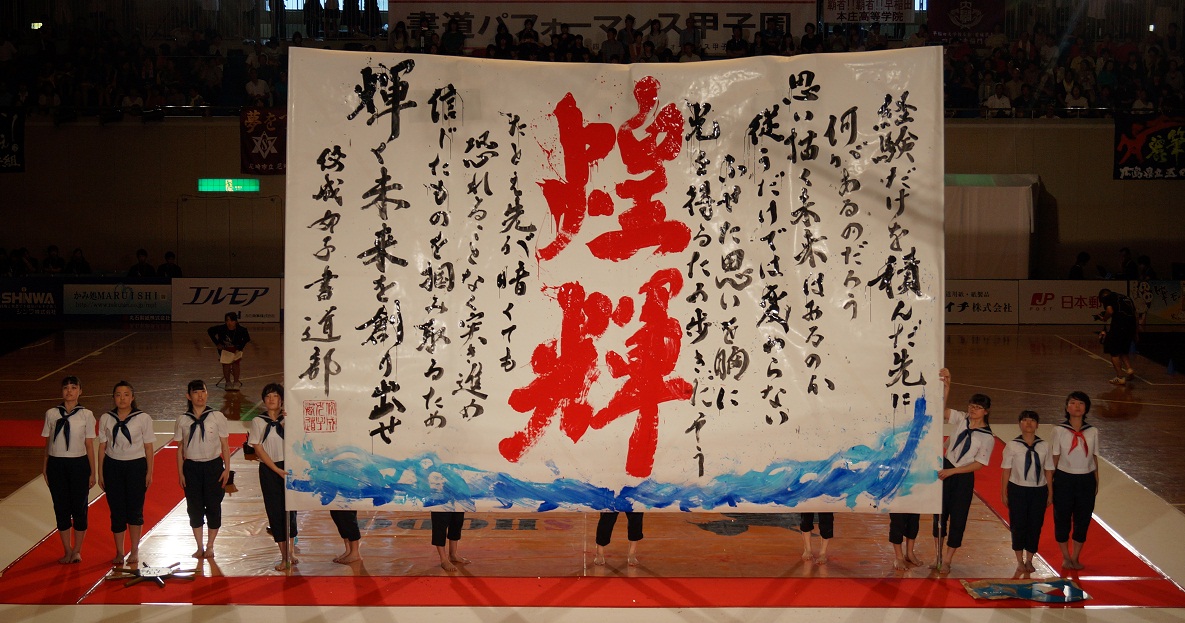 書道パフォーマンス甲子園
覇者!!覇者!!早稲田
本庄高等学院
経験だけを積んだ先に
何があるのだろう
思い描く未来はあるのか
従うだけでは変わらない
ふせた思いを胸に
光を得るため歩きだそう
煌輝
たとえ先が暗くても
恐れることなく突き進め
信じたものを掴み取るため
輝く未来を創り出せ
佼成女子書道部
夢を
SHINWA
かみ処MARUISHI
エルモア
イチ株式会社
JP 日本郵